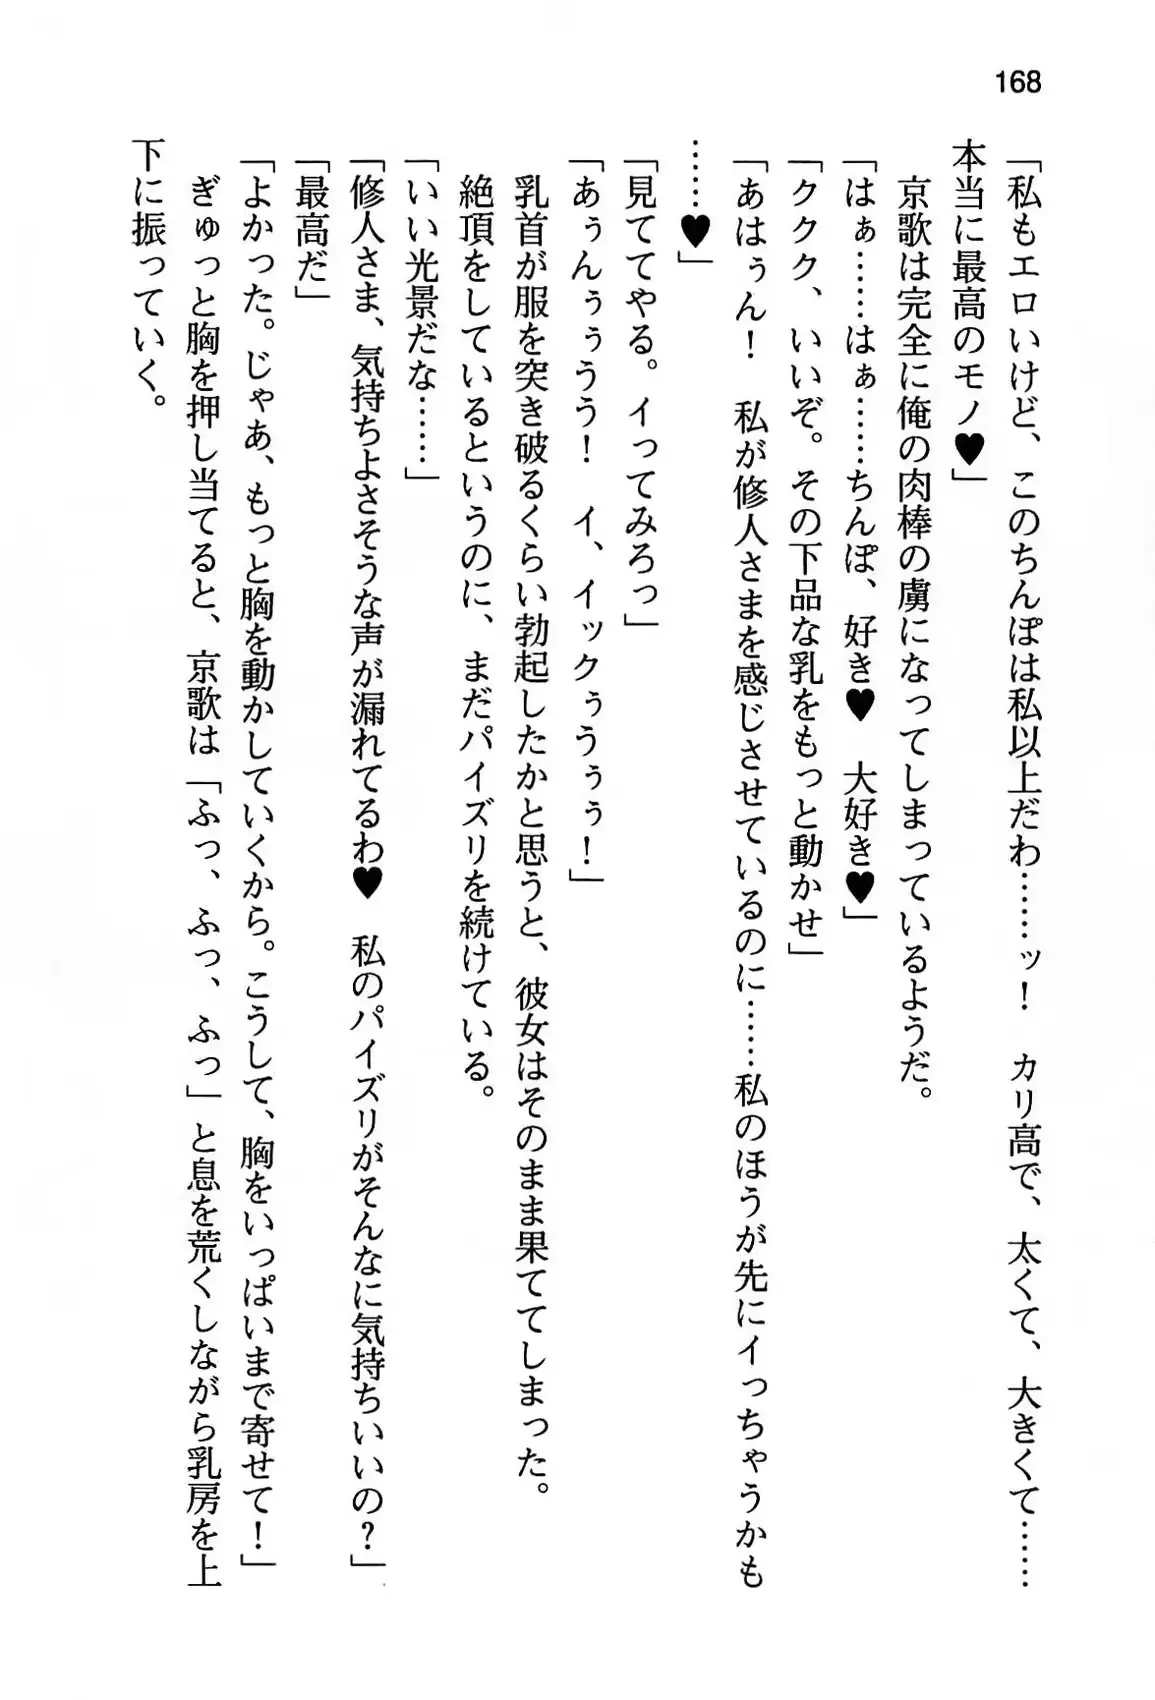 168
「私もエロいけど、このちんぽは私以上だわ……ッ！　カリ高で、太くて、大きくて……
本当に最高のモノ♥」
　京歌は完全に俺の肉棒の虜になってしまっているようだ。
「はぁ……はぁ……ちんぽ、好き♥　大好き♥」
「ククク、いいぞ。その下品な乳をもっと動かせ」
「あはぅん！　私が修人さまを感じさせているのに……私のほうが先にイっちゃうかも
……♥」
「見ててやる。イってみろっ」
「あぅんぅぅうう！　イ、イックぅうぅぅ！」
　乳首が服を突き破るくらい勃起したかと思うと、彼女はそのまま果ててしまった。
　絶頂をしているというのに、まだパイズリを続けている。
「いい光景だな……」
「修人さま、気持ちよさそうな声が漏れてるわ♥　私のパイズリがそんなに気持ちいいの？」
「最高だ」
「よかった。じゃあ、もっと胸を動かしていくから。こうして、胸をいっぱいまで寄せて！」
　ぎゅっと胸を押し当てると、京歌は「ふっ、ふっ、ふっ」と息を荒くしながら乳房を上
下に振っていく。